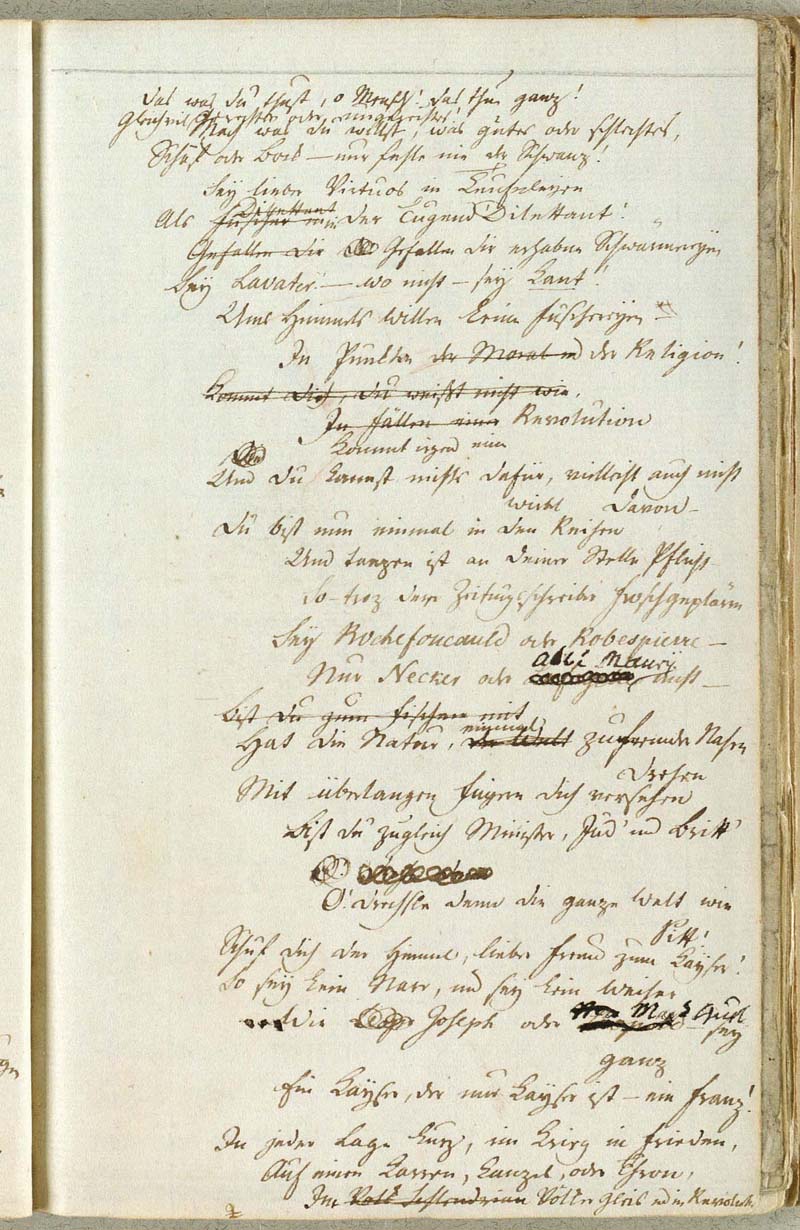 Das was du thust, o Mensch! das thue ganz!
Gleichviel Gerechtes oder ungerechtes!
Mach was du willst, was gutes oder schlechtes,
Schaf oder Bock – nur fehle nie der Schwanz!
Sey lieber Virtuos in Teufeleyen
Dilettant
Als Fuscher in der Tugend Dilettant!
Gefallen dir Gefallen dir erhabne Schwärmereyen
Sey Lavater! – wo nicht – sey Kant!
Ums Himmels willen keine Fuschereyen –
In Punkten der Moral und der Religion!
Kommt dich, du weißt nicht wie,
In fällen einer Revolution
Kommt irgend eine
Und du kannst nichts dafür, vielleicht auch nicht
davon –
Du bist nun einmal in den Reihen
Und tanzen ist an deiner Stelle Pflicht
So – troz der Zeitungsschreiber Froschgeplärre
Sey Rochefoucauld oder Robespierre –
Abbé Maury
Nur Necker oder nicht –
Bist du zum fischen mit
einmal
Hat die Natur, der Welt zu fremde Nasen
drehen
Mit überlangen Fingern dich versehen
Bist du zugleich Minister, Jud' und Britt'
O! drechsle denn die ganze Welt wie
Pitt!
Schuf dich der Himmel, lieber Freund zum Kayser!
So sey kein Narr, und sey kein Weiser
wie Joseph oder Mark Aurel – sey
ganz
Ein Kayser, der nur Kayser ist – ein Franz!
In jeder Lage kurz, im Krieg in Frieden,
Auf einem Karren, Kanzel, oder Thron,
Im Schlendrian Völker Gleis und in Revolut.